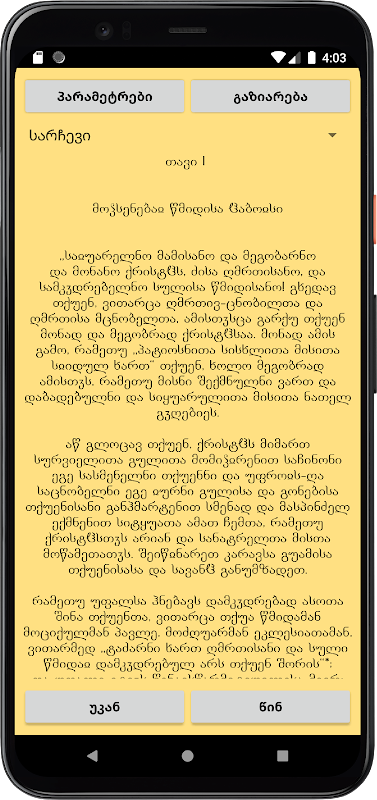 4:03
პარამეტრები
გაზიარება
სარჩევი
თავი I
მოჴსენებაჲ წმიდისა ჰაბოჲსი
„საყუარელნო მამისანო და მეგობარნო
და მონანო ქრისტჱს, ძისა ღმრთისანო, და
სამკჳდრებელნო სულისა წმიდისანო! გხედავ
თქუენ, ვითარცა ღმრთივ-ცნობილთა და
ღმრთისა მცნობელთა, ამისთჳსცა გარქუ თქუენ
მონად და მეგობრად ქრისტჱსაა. მონად ამის
გამო, რამეთუ „პატიოსნითა სისხლითა მისითა
სყიდულ ხართ“ თქუენ, ხოლო მეგობრად
ამისთჳს, რამეთუ მისნი შექმნულნი ვართ და
დაბადებულნი და სიყუარულითა მისითა ნათელ
გჳღებიეს.
აწ გლოცავ თქუენ, ქრისტჱს მიმართ
სურვიელითა გულითა მომიპყრენით საჩინონი
ეგე სასმენელნი თქუენნი და უფროჲს-ღა
საცნობელნი ეგე ყურნი გულისა და გონებისა
თქუენისანი განჰმარტენით სმენად და მასპინძელ
ექმნენით სიტყუათა ამათ ჩემთა, რამეთუ
ქრისტჱსთჳს არიან და სანატრელთა მისთა
მოწამეთათჳს. შეიწყნარეთ კარავსა გუამისა
თქუენისასა და სავანჱ განუმზადეთ.
რამეთუ უფალსა ჰნებავს დამკჳდრებად ასოთა
შინა თქუენთა, ვითარცა თქუა წმიდამან
მოციქულმან პავლე, მოძღუარმან ეკლესიათამან,
ვითარმედ „ტაძარნი ხართ ღმრთისანი და სული
წმიდაჲ დამკჳდრებულ არს თქუენ შორის“*:
უკან
წინ